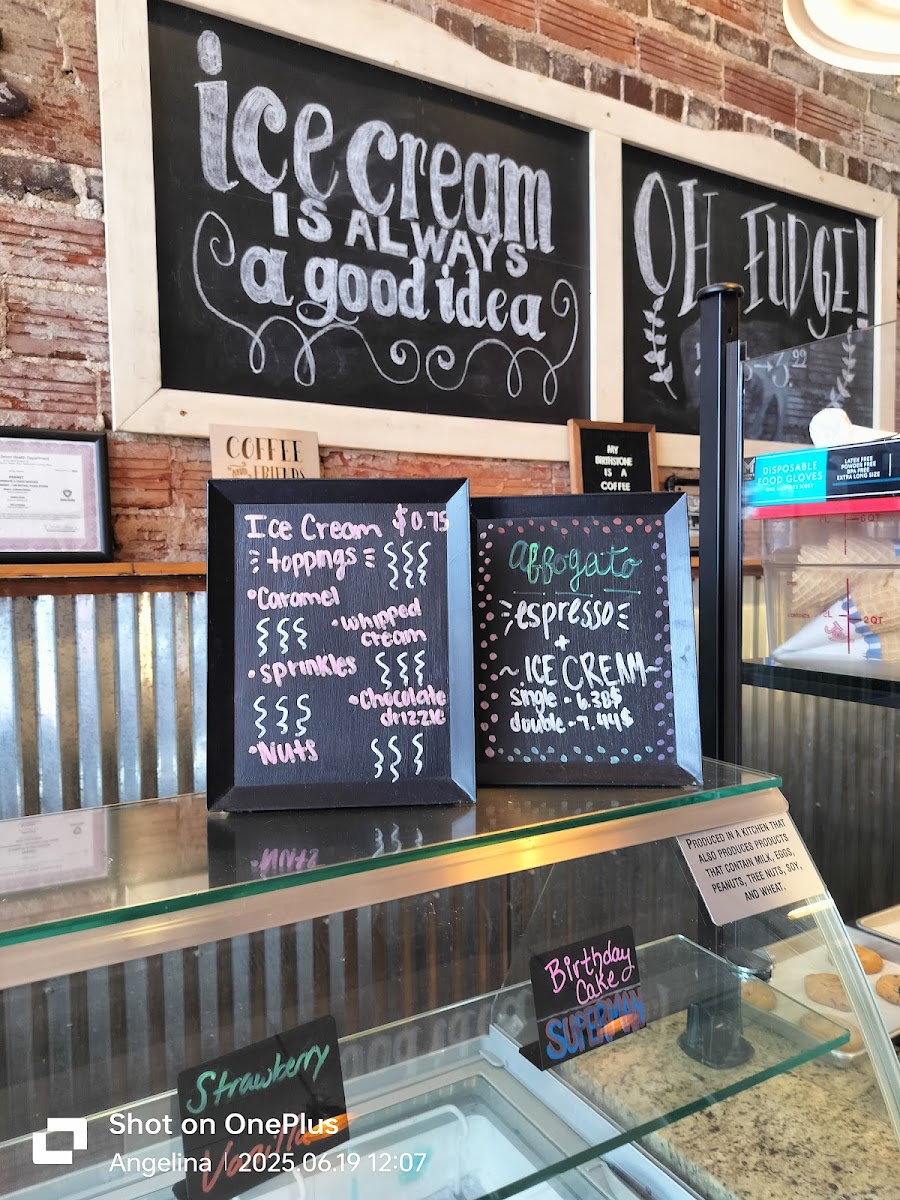 ice cream
IS ALWAYS
a good idea
OH FUDGE!
COFFEE
AND FRIENDS
MY
BIRTHSTONE
IS A
COFFEE
DISPOSABLE
FOOD GLOVES
LATEX FREE
POWDER FREE
BPA FREE
EXTRA LONG SIZE
2QT
Ice Cream $0.75
toppings
•Caramel
•whipped
cream
•sprinkles
•Chocolate
drizzle
•Nuts
affogato
espresso
+
~.ICE CREAM~
single • 6.38$
double • 7.44$
PRODUCED IN A KITCHEN THAT
ALSO PRODUCES PRODUCTS
THAT CONTAIN MILK, EGGS,
PEANUTS, TREE NUTS, SOY,
AND WHEAT.
Birthday
Cake
SUPERMAN
Strawberry
Vanilla
Shot on OnePlus
Angelina | 2025.06.19 12:07